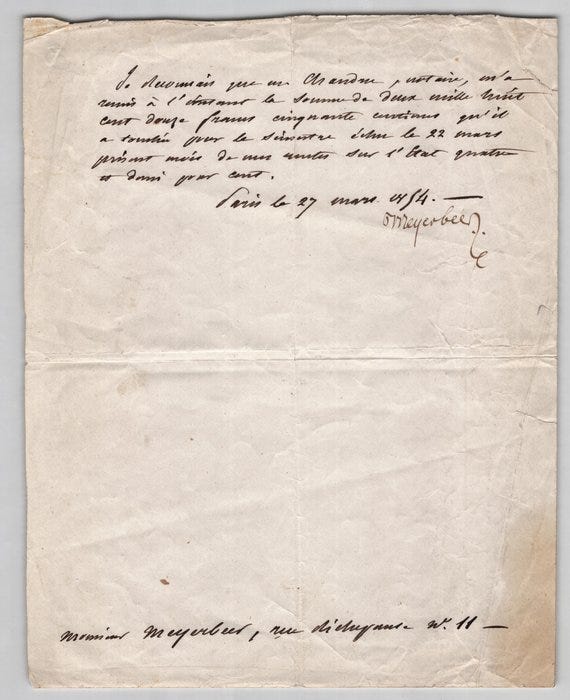 Je reconnais que me Chandru, notaire, m'a
remis à l'instant la somme de deux mille huit
cent douze francs cinquante centimes qu'il
a touchée pour le semestre échu le 22 mars
présent mois de mes rentes sur l'Etat quatre
et demi pour cent.
Paris le 27 mars 1854. —
Meyerbeer
Monsieur Meyerbeer, rue No. 11 —